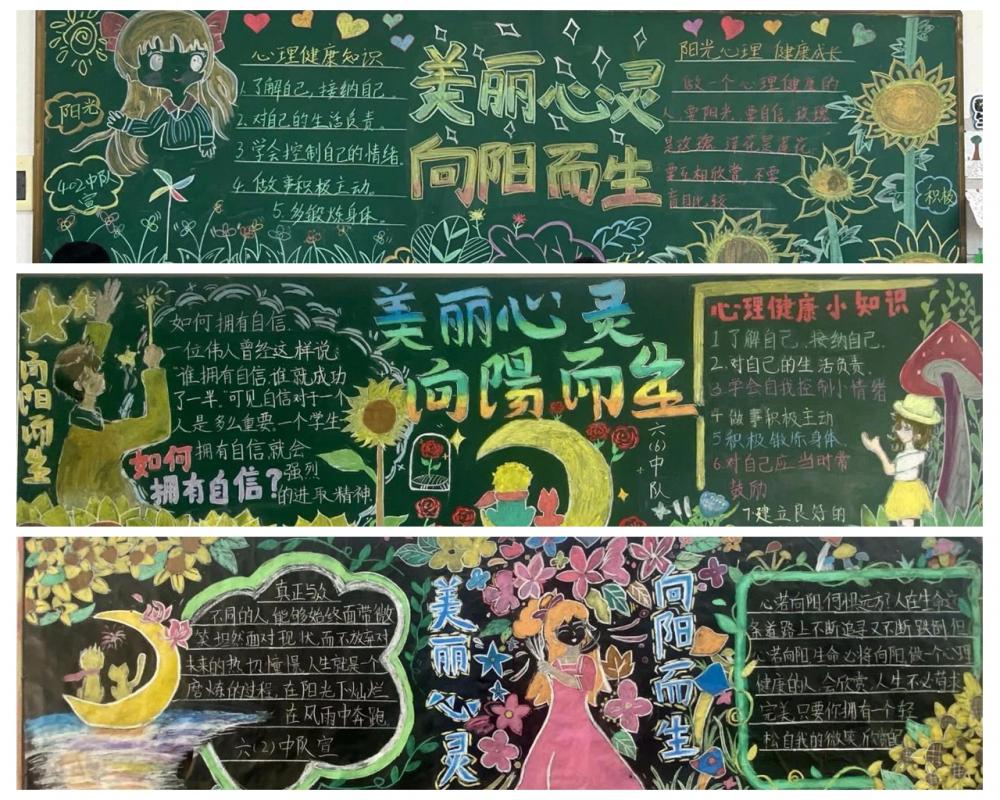 阳光
402中队
宣
心理健康知识
1.了解自己,接纳自己.
2.对自己的生活负责.
3.学会控制自己的情绪.
4.做事积极主动.
5.多锻炼身体.
美丽心灵
向阳而生
阳光心理 健康成长
做一个心理健康的
人要阳光,要自信,玫瑰
是玫瑰,莲花是莲花,
要互相欣赏,不要
盲目比较
积极
向阳而生
如何拥有自信.
一位伟人曾经这样说:
“谁拥有自信,谁就成功
了一半.”可见自信对于一个
人是多么重要.一个学生
拥有自信就会
强烈
的进取精神.
如何
拥有自信?
美丽心灵
向陽而生
六(6)中队
心理健康小知识
1了解自己.接纳自己.
2.对自己的生活负责.
3.学会自我控制小情绪
4做事积极主动
5积极锻炼身体.
6.对自己应当时常
鼓励
7.建立良好的
真正与众
不同的人,能够始终面带微
笑坦然面对现状,而不放弃对
未来的热切憧憬.人生就是一个
磨炼的过程,在阳光下灿烂
在风雨中奔跑.
六(2)中队宣
美丽心灵
向阳而生
心若向阳何惧远方!人在生命这
条道路上不断追寻又不断跌倒,但
心若向阳,生命必将向阳,做一个心理
健康的人,会欣赏人生不必苛求
完美,只要你拥有一个轻
松自我的微笑